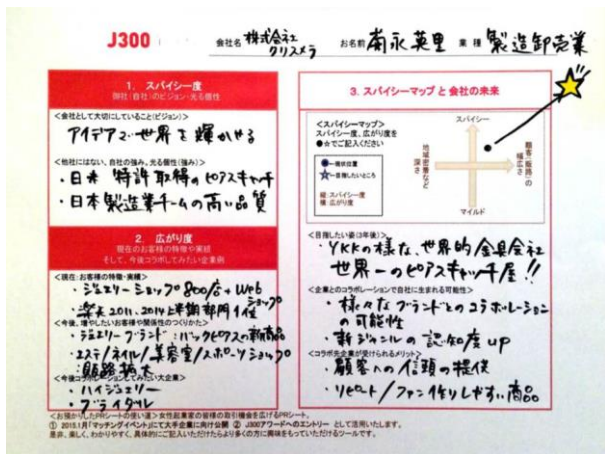 J300
会社名 株式会社
クリスメラ
お名前 菊永英里 業種 製造卸売業
1. スパイシー度
御社(自社)のビジョン・光る個性
<会社として大切にしていること(ビジョン)>
アイデアで世界を輝かせる
<他社にはない、自社の強み、光る個性(強み)>
・日米 特許取得のピアスキャッチ
・日本製造業チームの高い品質
2. 広がり度
現在のお客様の特徴や実績
そして、今後コラボしてみたい企業例
<現在:お客様の特徴・実績>
・ジュエリーショップ800店+Web
ショップ
・楽天2011、2014上半期部門1位
<今後、増やしたいお客様や関係性のつくりかた>
・ジュエリーブランド:バックピアスの新商品
・エステ/ネイル/美容室/スポーツショップ
:販路拡大
<今後コラボレーションしてみたい大企業>
・ハイジュエリー
・ブライダル
3. スパイシーマップ と 会社の未来
<スパイシーマップ>
スパイシー度、広がり度を
●☆でご記入ください
●→現状位置
☆→目指したいところ
縦:スパイシー度
横:広がり度
スパイシー
地域密着など
深さ
顧客(販路)の
幅広さ
マイルド
<目指したい姿(3年後)>
・YKKの様な、世界的金具会社
世界一のピアスキャッチ屋!!
<企業とのコラボレーションで自社に生まれる可能性>
・様々なブランドとのコラボレーション
の可能性
・新ジャンルの認知度up
<コラボ先企業が受けられるメリット>
・顧客への信頼の提供
・リピート/ファン作りしやすい商品
<お預かりしたPRシートの使い道>女性起業家の皆様の取引機会を広げるPRシート。
① 2015.1月「マッチングイベント」にて大手企業に向け公開 ② J300アワードへのエントリー として活用いたします。
是非、楽しく、わかりやすく、具体的にご記入いただけたらより多くの方に興味をもっていただけるツールです。